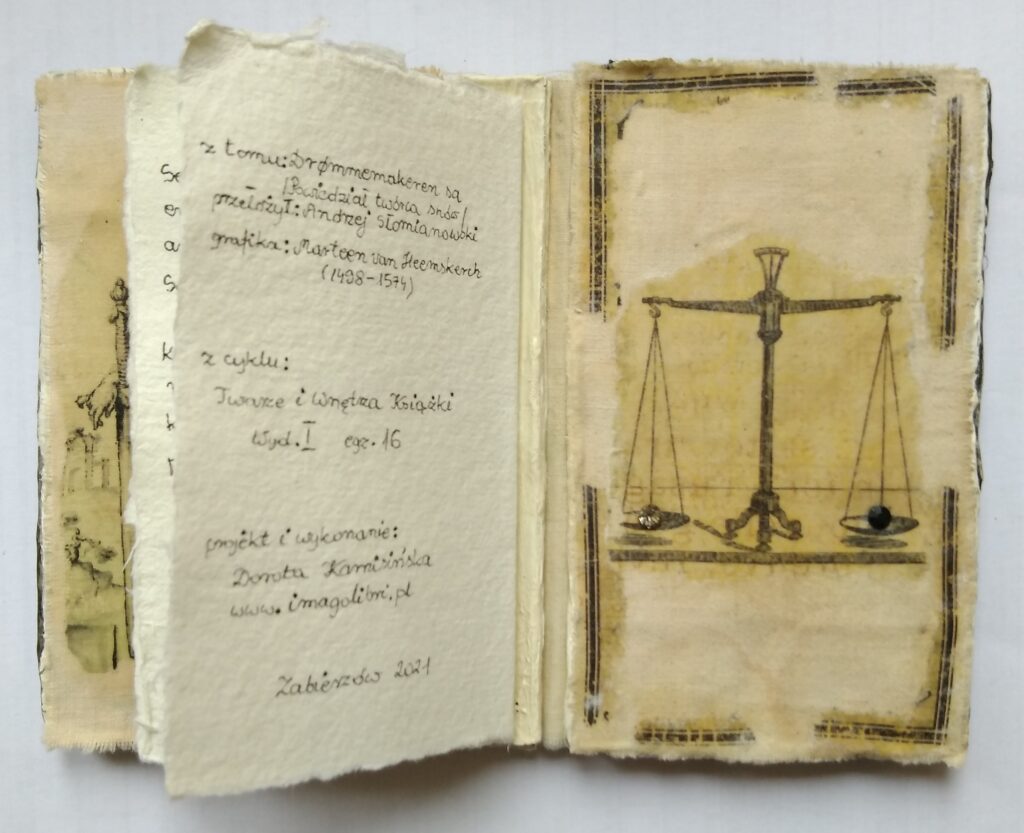 z tomu: Drømmemakeren są
/Powiedział twórca snów/
przełożył: Andrzej Słomianowski
grafika: Marteen van Heemskerch
(1498-1574)
z cyklu:
Twarze i Wnętrza Książki
Wyd. I egz. 16
projekt i wykonanie:
Dorota Kamisińska
www.imagolibri.pl
Zabierzów 2021